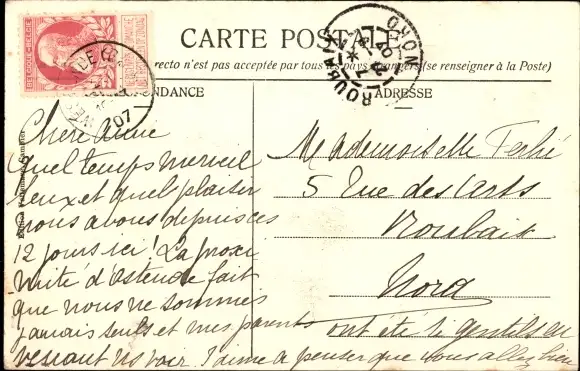 CARTE POSTALE
recto n'est pas acceptée par tous les pays étrangers (se renseigner à la Poste)
ADRESSE
Chère Anne
Quel temps merveil
leux et quel plaisir
nous avons depuis ces
12 jours ici! La proxi
mité d'Ostende fait
que nous ne sommes
jamais seuls et mes parents ont été si gentils en
venant ns voir. J'aime à penser que vous allez bien
Mademoiselle
5 Rue des Arts
Roubaix
Nord
ROUBAIX
NORD
07